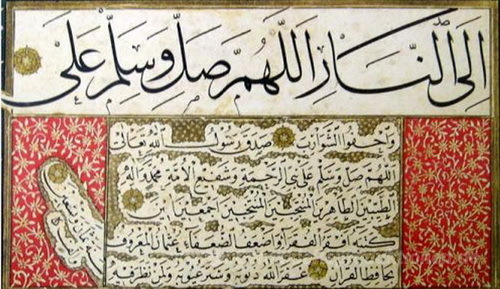 الى النار اللهم صل وسلم على
وحفوا الشوارب صدق رسول الله تعالى
اللهم صل وسلم على نبي الرحمة وشفيع الأمة محمد واله
الطيبين الطاهرين المنتجبين اجمعين
كتبه افقر الفقرآء واضعف الضعفآء عثمان المعروف
بحافظ القرآن غفر الله ذنوبه وستر عيوبه ولمن نظر فيه